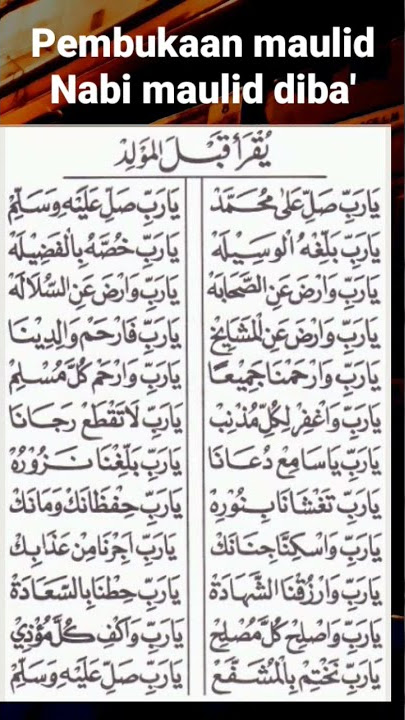 Pembukaan maulid
Nabi maulid diba'
يُقْرَأُ قَبْلَ الْمَوْلِدِ
يَارَبِّ صَلِّ عَلَى مُحَمَّدْ يَارَبِّ صَلِّ عَلَيْهِ وَسَلِّمْ
يَارَبِّ بَلِّغْهُ الْوَسِيلَهْ يَارَبِّ خُصَّهُ بِالْفَضِيلَهْ
يَارَبِّ وَارْضَ عَنِ الصَّحَابَهْ يَارَبِّ وَارْضَ عَنِ السُّلَالَهْ
يَارَبِّ وَارْضَ عَنِ الْمَشَايِخْ يَارَبِّ فَارْحَمْ وَالِدِينَا
يَارَبِّ وَارْحَمْنَا جَمِيعًا يَارَبِّ وَارْحَمْ كُلَّ مُسْلِمْ
يَارَبِّ وَاغْفِرْ لِكُلِّ مُذْنِبْ يَارَبِّ لَاتَقْطَعْ رَجَانَا
يَارَبِّ يَاسَامِعْ دُعَانَا يَارَبِّ بَلِّغْنَا نَزُورُهْ
يَارَبِّ تَغْشَانَا بِنُورِهْ يَارَبِّ حِفْظَانَكْ وَمَانَكْ
يَارَبِّ وَاسْكِنَّا جِنَانَكْ يَارَبِّ اَجِرْنَا مِنْ عَذَابِكْ
يَارَبِّ وَارْزُقْنَا الشَّهَادَهْ يَارَبِّ حِطْنَا بِالسَّعَادَهْ
يَارَبِّ وَاصْلِحْ كُلَّ مُصْلِحْ يَارَبِّ وَاكْفِ كُلَّ مُؤْذِيْ
يَارَبِّ نَخْتِمْ بِالْمُشَفَّعْ يَارَبِّ صَلِّ عَلَيْهِ وَسَلِّمْ